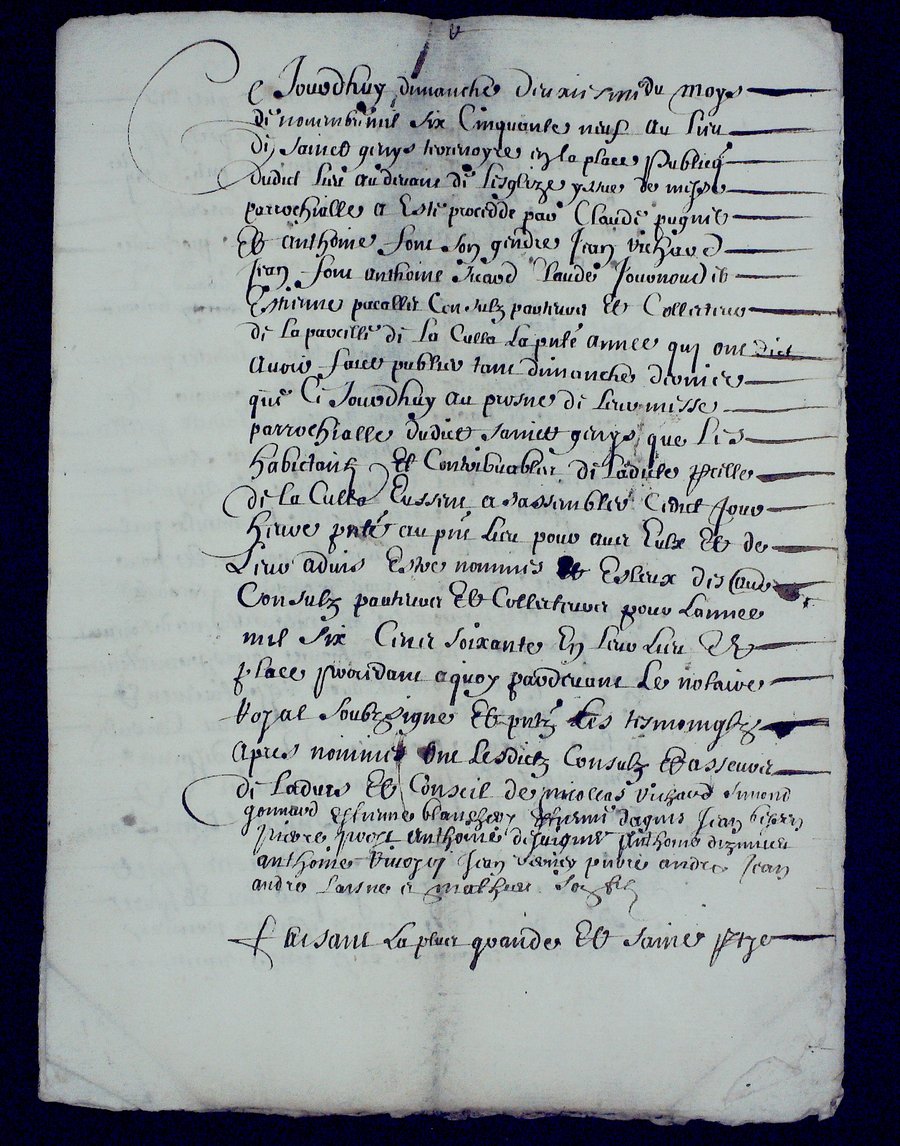 Ce Jourdhuy dimanche deuxiesme du moys
de novembre mil six Cinquante neuf au lieu
de sainct genys terrenoyre en la place publicq
dudict lieu au devant de lesglize yssue de messe
parrochialle a esté procedde par Claude pugnie
Et anthoine font son gendre Jean richard
Jean font anthoine Jicard Claude
Estienne pacallet Consulz partieurs Et Collecteurs
de la parcelle de la Culla la pnte annee qui ont dict
avoir faict publier tant dimanche dernier
que Ce Jourdhuy au prosne de leur messe
parrochialle dudict sainct genys que les
habictantz Et Contribuables de ladicte pcelle
de la Culla Eussent a sassembler Cedict Jour
heure pnte au pnt lieu pour avec Eulx Et de
Leur advis Estre nommes Et Esleux des Candes
Consulz partieurs Et Collecteurs pour Lannee
mil six Cent soixante En leur lieu Et
place procedant a quoy pardevant le notaire
Royal soubzsigne Et pntz les tesmoingtz
apres nommes ont lesdictz Consulz Et asseurs
de Ladvis Et Conseil de nicollas richard simond
gonnard estienne blanchery dagnis Jean
pierre anthoine anthoine
anthoine Jean pierre andre Jean
andre Laisne et mathieu
faisant la plus grande Et saine ptye